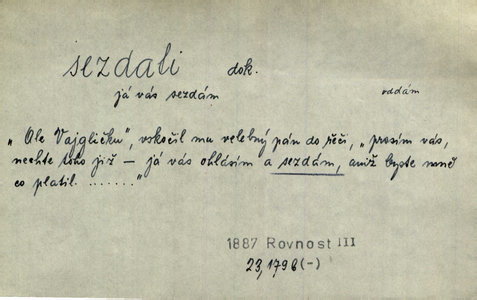 sezdati dok.
já vás sezdám oddám
„Ale Vajglíčku", vskočil mu velebný pán do řeči, „prosím vás,
nechte toho již — já vás ohlásím a sezdám, aniž byste mně
co platil. ......."
1887 Rovnost III
23, 179 (-)